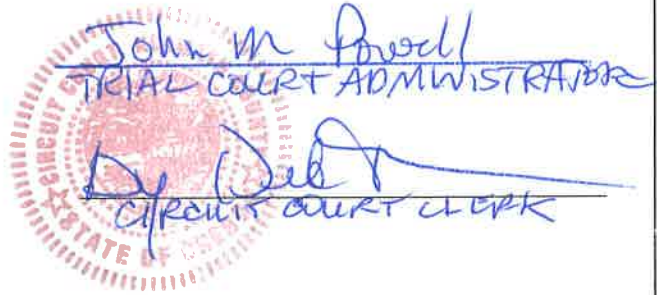 John M Powell
TRIAL COURT ADMINISTRATOR
By
CIRCUIT COURT CLERK
CIRCUIT
STATE OF